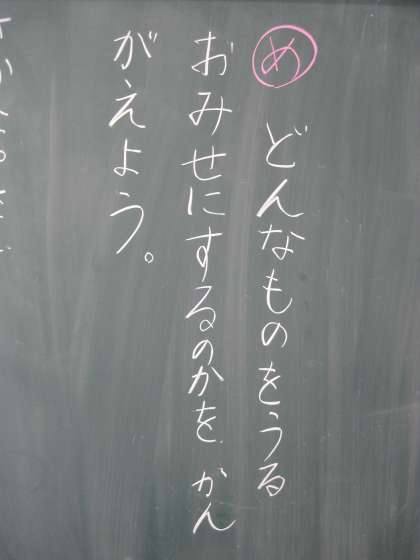 め どんなものをうる
おみせにするのかを かん
がえよう。